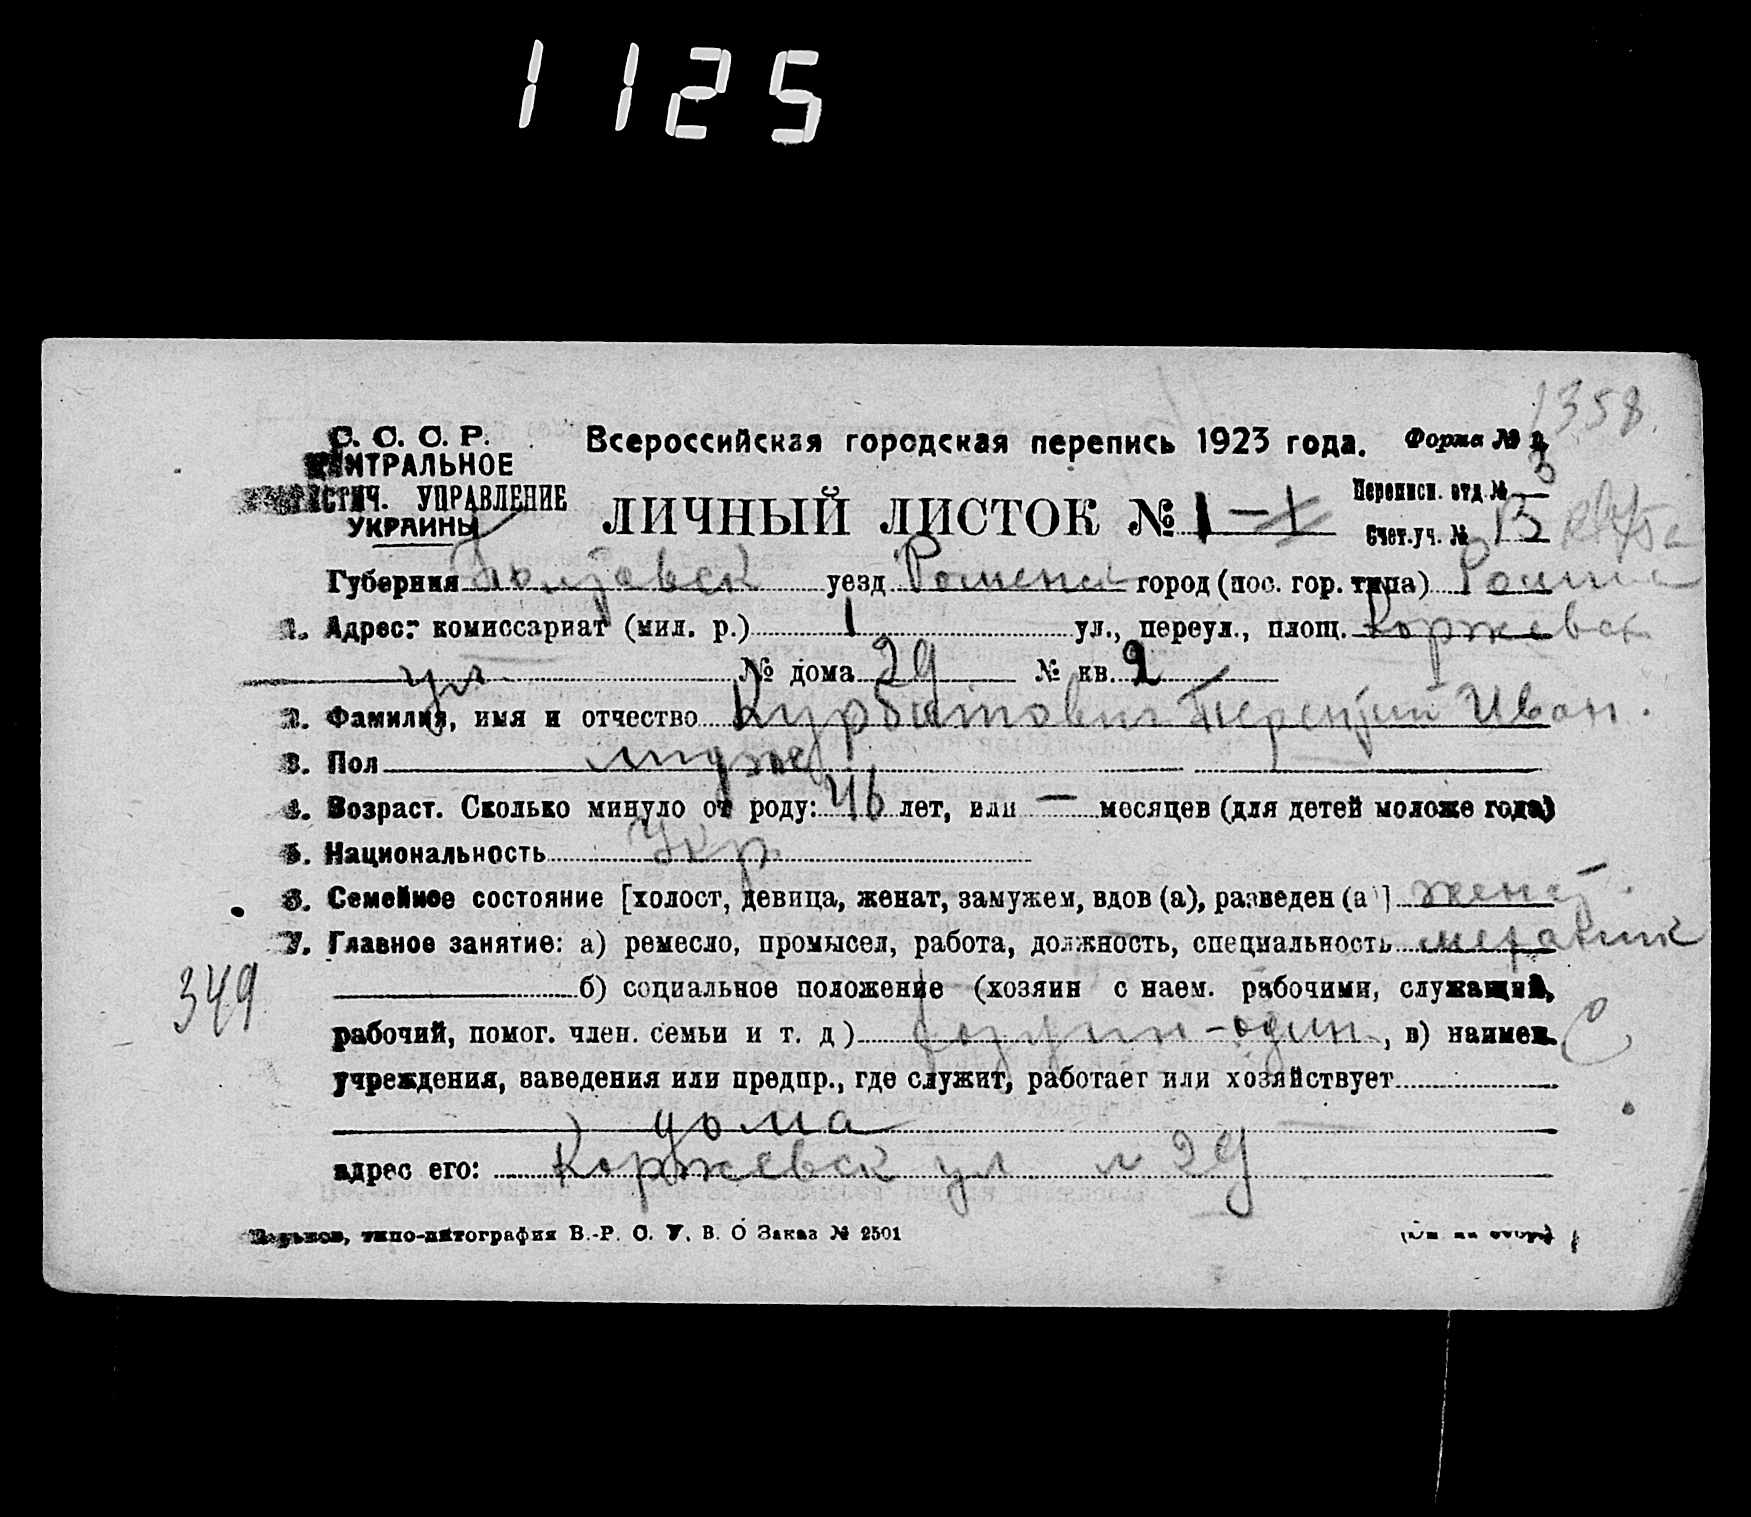 1125
1358.
С. С. С. Р.
ЦЕНТРАЛЬНОЕ
СТАТИСТИЧ. УПРАВЛЕНИЕ
УКРАИНЫ
Всероссийская городская перепись 1923 года. Форма № 2
ЛИЧНЫЙ ЛИСТОК № 1 – 1
Переписн. отд. № 3
Счет. уч. № 13
Губерния Полтавск уезд Роменск город (пос. гор. типа) Ромны
1. Адрес: комиссариат (мил. р.) 1 ул., переул., площ. Коржевск
ул № дома 29 № кв. 2
2. Фамилия, имя и отчество Курбатович Терентий Иван.
3. Пол мужс
4. Возраст. Сколько минуло от роду: 46 лет, или — месяцев (для детей моложе года)
5. Национальность Укр
6. Семейное состояние [холост, девица, женат, замужем, вдов (а), разведен (а)] женат.
7. Главное занятие: а) ремесло, промысел, работа, должность, специальность механик
349
б) социальное положение (хозяин с наем. рабочими, служащий,
рабочий, помог. член. семьи и т. д) -один, в) наимен.
учреждения, заведения или предпр., где служит, работает или хозяйствует
дома
адрес его: Коржевск ул № 29
Харьков, типо-литография В.-Р. С. У. В. О Заказ № 2501
(См. на обор.)